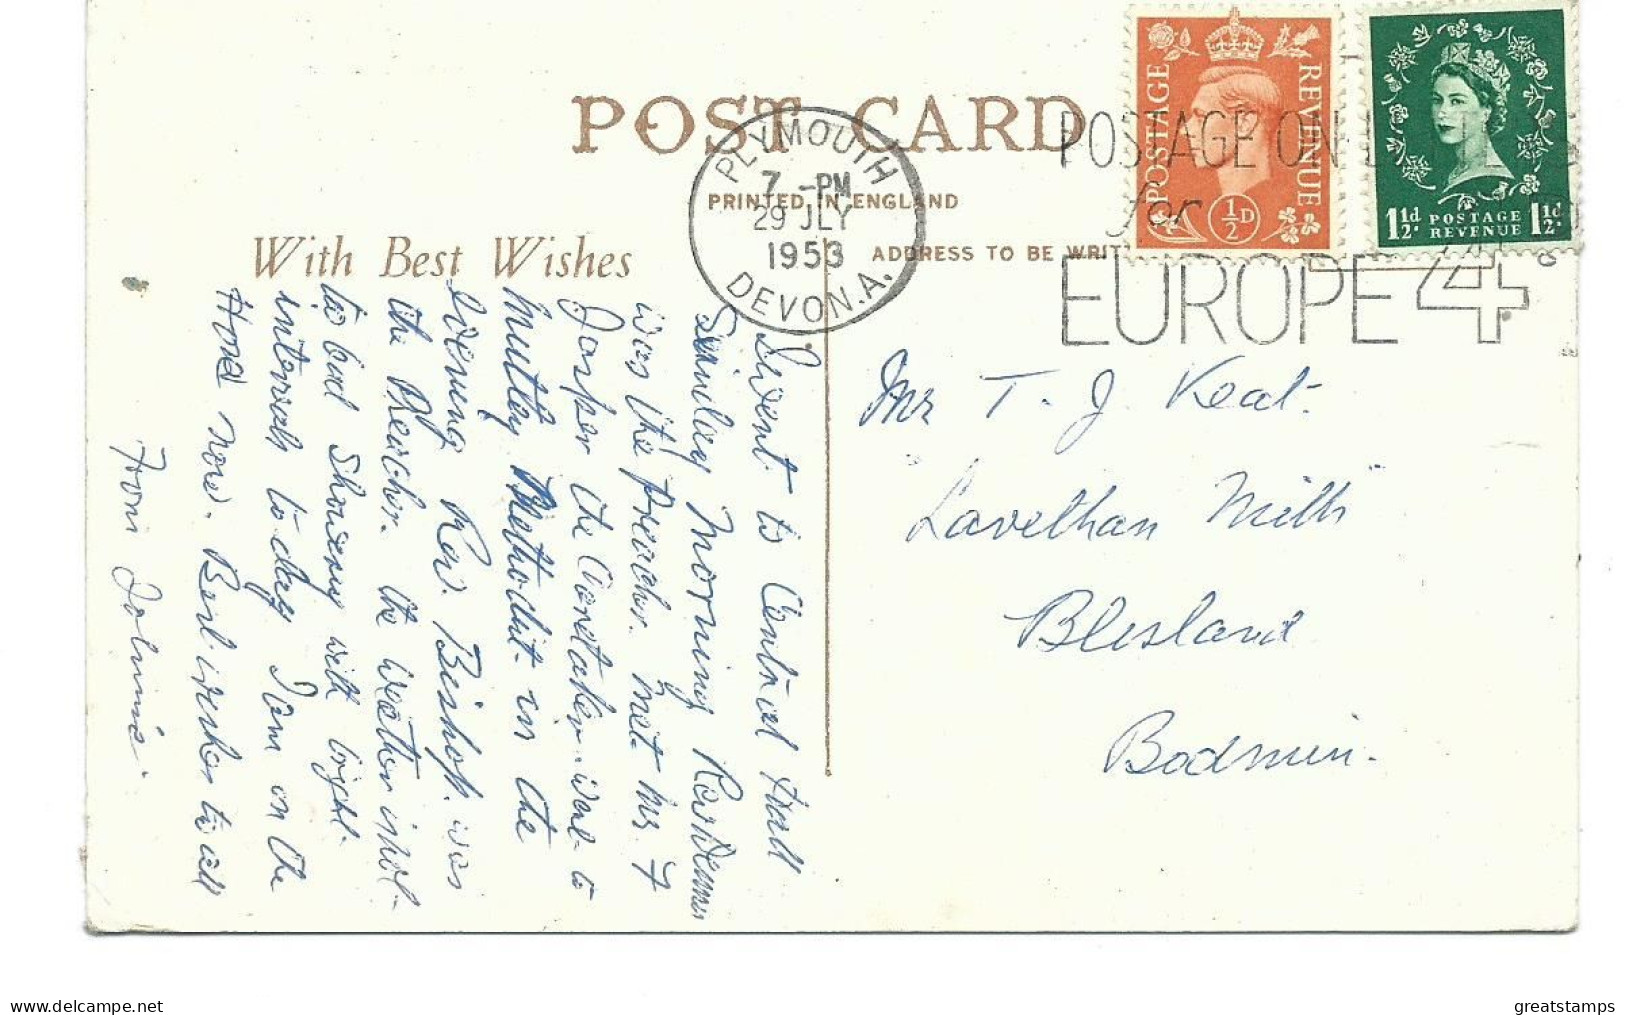 POST CARD
PRINTED IN ENGLAND
With Best Wishes
ADDRESS TO BE WRIT
PLYMOUTH
7 - PM
29 JLY
1953
DEVON.A.
POSTAGE ON
for
EUROPE 4
POSTAGE REVENUE
½D
1½d. POSTAGE 1½d.
REVENUE
Mr T. J. Keat.
Lavethan Mill
Blisland
Bodmin.
I went to Central Hall
Sunday Morning Rev
was the preacher. met Mrs. &
Jasper the Caretaker. went to
Mutley Methodist in the
Evening Rev. Bishop. was
the Preacher. the weather is not
to bad Showery with bright
intervals to day I am on the
Hore now. Best wishes to all
From
delcampe.net
greatstamps